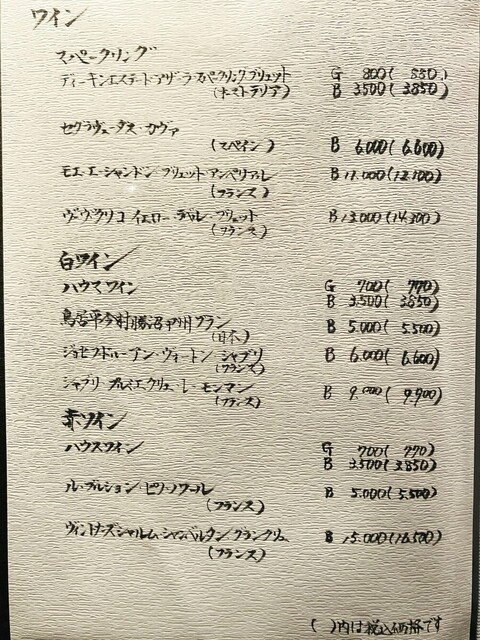 ワイン
スパークリング
ディーキンエステート・アザーラ スパークリングブリュット G 800( 880)
(オーストラリア) B 3500( 3850)
セグラヴューダス・カヴァ
(スペイン) B 6.000(6.600)
モエ・エ・シャンドン ブリュット・アンペリアル B 11.000(12.100)
(フランス)
ヴーヴ・クリコ イエローラベル・ブリュット B 13.000(14.300)
(フランス)
白ワイン
ハウスワイン G 700( 770)
B 3.500(3850)
鳥居平今村勝沼甲州ブラン B 5.000( 5.500)
(日本)
ジョセフドルーアン・ヴォードン シャブリ B 6.000(6.600)
(フランス)
シャブリ プルミエクリュ モンマン B 9.000( 9.900)
(フランス)
赤ワイン
ハウスワイン G 700( 770)
B 3.500(3.850)
ル・ブルション ピノ・ノワール B 5.000(5.500)
(フランス)
シャルム・シャンベルタン グランクリュ B 15.000(16.500)
(フランス)
( )内は税込価格です